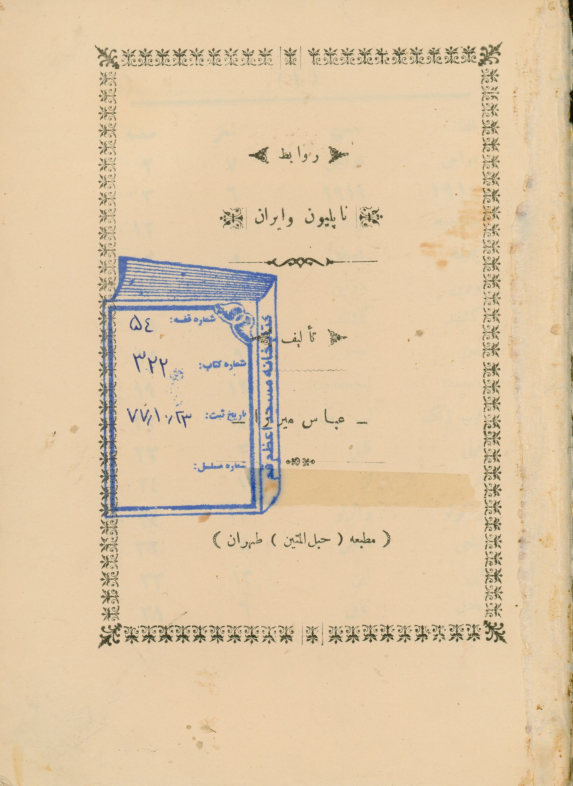 روابط
ناپلیون وایران
تألیف
عباس میرزا
( مطبعه ( حبل المتین ) طهران )
شماره قفسه: ۵٤
شماره کتاب: ۳۲۲
تاریخ ثبت: ۷۷/۱۰/۲۳
شماره مسلسل:
کتابخانه مسجد اعظم قم